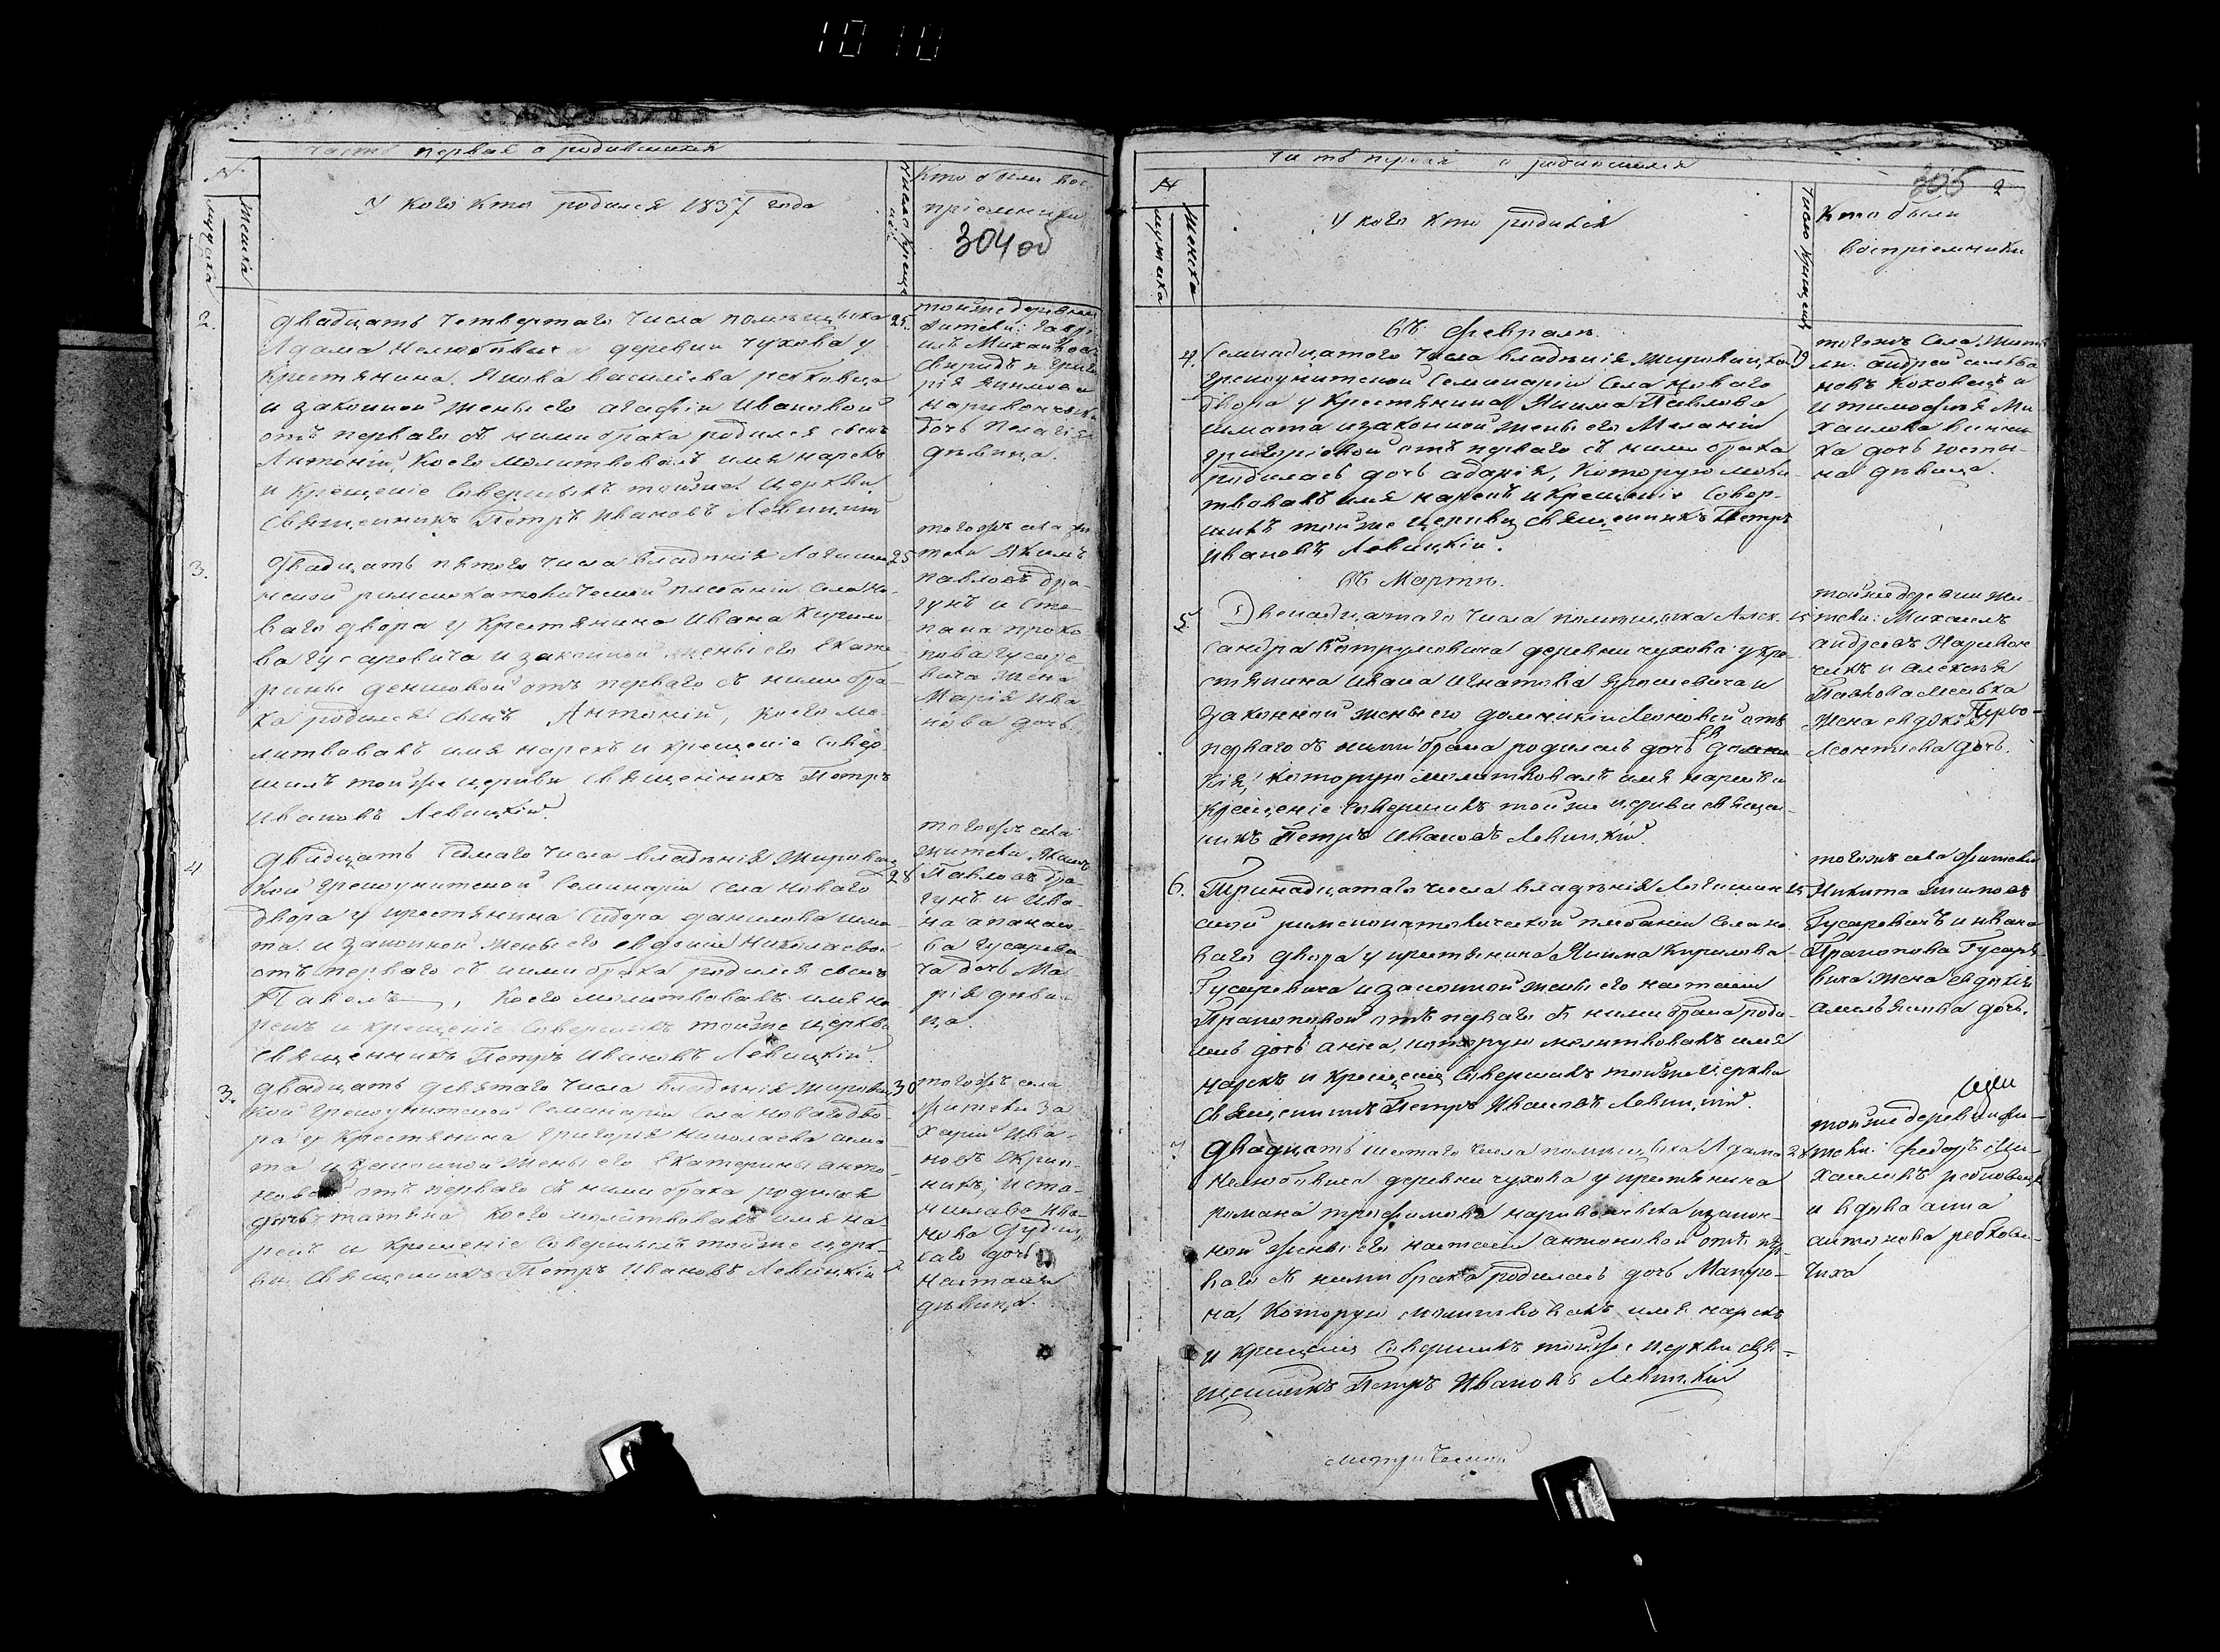 1010
Часть первая о родившихся
№
Мужска
Женска
У кого кто родился 1837 года
Число крещенія
Кто были вос-
пріемники
304 об
2. Двадцать четвертаго числа помѣщика 25.
Адама Нелюбовича деревни Чухова у
крестьянина Якова Василіева ребковца
и законной жены его Агафіи Ивановой
отъ перваго съ ними брака родился сынъ
Антоній, коего молитвовалъ имя нарекъ
и крещеніе совершилъ тойже церкви
священникъ Петръ Ивановъ Левицкій
тойже деревни
жители:
дочь Пелагія
дѣвица.
3. Двадцать пятаго числа владѣнія Логишин- 25
ской римскокатолической плебаніи села Но-
ваго двора у крестьянина Ивана Кирило-
ва Гусаревича и законной жены его Екате-
рины Денисовой отъ перваго съ ними бра-
ка родился сынъ Антоній, коего мо-
литвовалъ имя нарекъ и крещеніе совер-
шилъ тойже церкви священникъ Петръ
Ивановъ Левицкій.
тогожъ села жи-
тели Якимъ
Павловъ Дра-
гунъ и Сте-
пана Проко-
пова Гусаре-
вича жена
Марія Ива-
нова дочь.
4 Двадцать седмаго числа владѣнія Жирович- 28
кой грекоунитской семинаріи села Новаго
двора у крестьянина Сидора Данилова Шма-
та и законной жены его Евдокіи Николаевой
отъ перваго съ ними брака родился сынъ
Павелъ, коего молитвовалъ имя на-
рекъ и крещеніе совершилъ тойже церкви
священникъ Петръ Ивановъ Левицкій.
тогожъ села
жители Якимъ
Павловъ Дра-
гунъ и Ива-
на Апанасо-
ва Гусареви-
ча дочь Ма-
рія дѣви-
ца.
3. Двадцать девятаго числа владѣнія Жирович- 30
кой грекоунитской семинаріи села Новаго дво-
ра у крестьянина Григорія Николаева Шма-
та и законной жены его Екатерины Анто-
новой отъ перваго съ ними брака родилась
дочь Татіяна коего молитвовалъ имя на-
рекъ и крещеніе совершилъ тойже церк-
ви священникъ Петръ Ивановъ Левицкій
тогожъ села
жители За-
харій Ива-
новъ
никъ, и Ста-
нислава Ива-
нова
дочь
Настасія
дѣвица.
Часть первая о родившихся
305 2
№
Мужска
Женска
У кого кто родился
Число крещенія
Кто были
воспріемники
Въ февралѣ.
4. Семнадцатаго числа владѣнія Жировицкой 19
грекоунитской семинаріи села Новаго
двора у крестьянина Якима Павлова
Шмата и законной жены его Меланіи
Григоріевой отъ перваго съ ними брака
родилась дочь Адарія, которую моли-
твовалъ имя нарекъ и крещеніе совер-
шилъ тойже церкви священникъ Петръ
Ивановъ Левицкій.
тогожъ села жите-
ли: Андрей
новъ Коховецъ и
и Тимофея Ми-
хайлова
ка дочь Юсти-
на дѣвица.
Въ Мартѣ.
5. Двенадцатаго числа помѣщика Алек- 15
сандра деревни Чухова у кре-
стьянина Ивана Игнатова Ярошевича и
законной жены его Домникіи Леоновой отъ
перваго съ ними брака родилась дочь
кія, которую молитвовалъ имя нарекъ и
крещеніе совершилъ тойже церкви священ-
никъ Петръ Ивановъ Левицкій.
тойже деревни жи-
тели: Михаилъ
Андреевъ Наривон-
чикъ и Алексѣя
Павлова
жена Евдокія
Леонтіева дочь.
6. Тринадцатаго числа владѣнія Логишин- 15
ской римскокатолической плебаніи села Но-
ваго двора у крестьянина Якима Кирилова
Гусаревича и законной жены его Настасіи
Прокоповой отъ перваго съ ними брака роди-
лась дочь Анна, которую молитвовалъ имя
нарекъ и крещеніе совершилъ тойже церкви
священникъ Петръ Ивановъ Левицкій.
тогожъ села жители
Никита Якимовъ
Гусаревичъ и Ивана
Прокопова Гусаре-
вича жена Евдокія
Амельянова дочь.
7 Двадцать шестаго числа помѣщика Адама 28
Нелюбовича деревни Чухова у крестьянина
Романа Трофимова Наривончика и закон-
ной жены его Настасіи Антоновой отъ пер-
ваго съ ними брака родилась дочь Матро-
на, которую молитвовалъ имя нарекъ
и крещеніе совершилъ тойже церкви свя-
щенникъ Петръ Ивановъ Левицкій
тойже деревни жи-
тели: Федоръ Ми-
хаиловъ ребковецъ
и вдова Анна
Антонова ребкови-
чиха